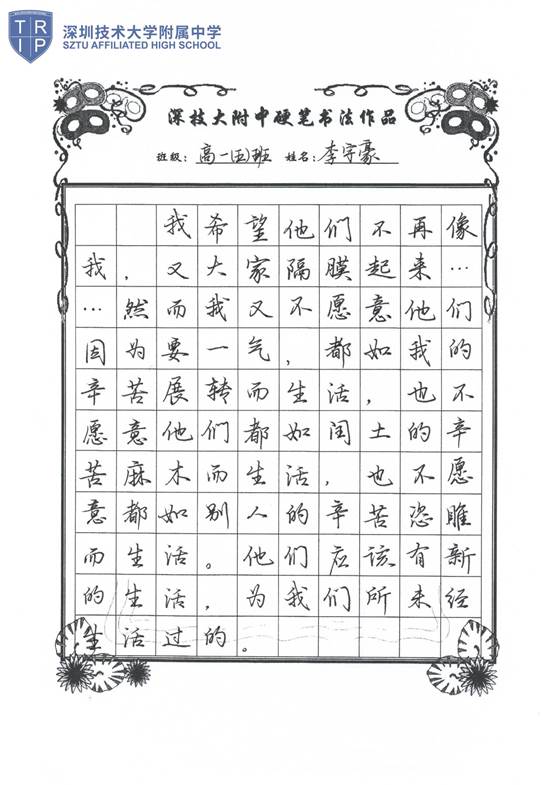 深圳技术大学附属中学
SZTU AFFILIATED HIGH SCHOOL
TRIP
深技大附中硬笔书法作品
班级：高一(五)班 姓名：李宇豪
我希望他们不再像
我，又大家隔膜起来…
…然而我又不愿意他们
因为要一气，都如我的
辛苦展转而生活，也不
愿意他们都如闰土的辛
苦麻木而生活，也不愿
意都如别人的辛苦恣睢
而生活。他们应该有新
的生活，为我们所未经
生活过的。